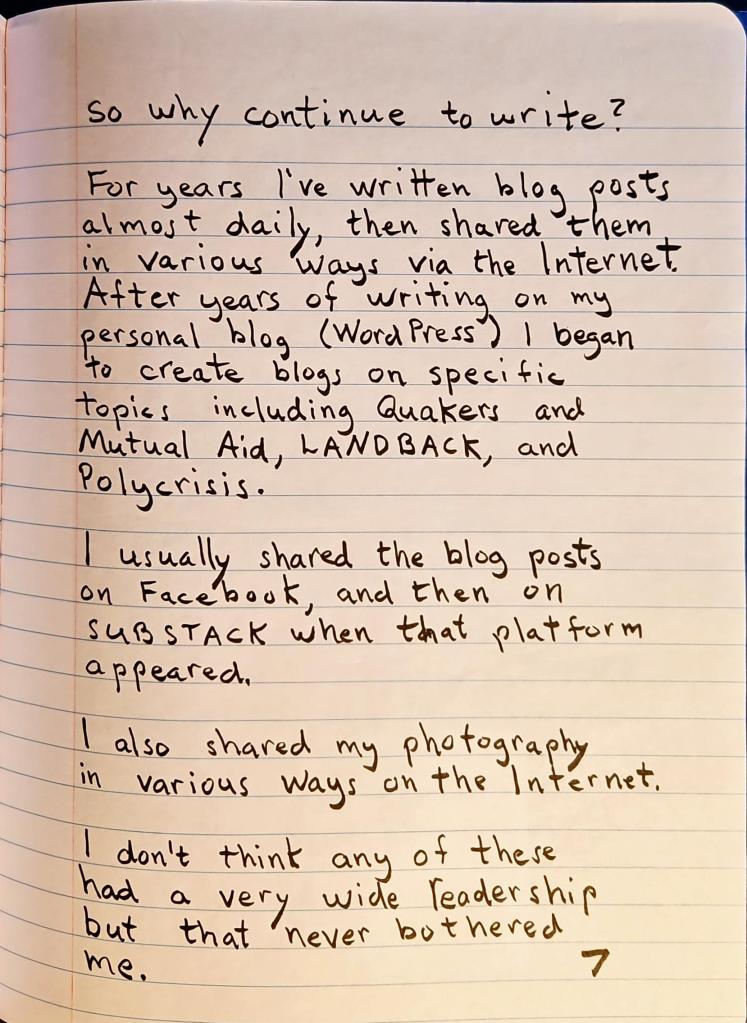 So why continue to write?
For years I've written blog posts
almost daily, then shared them
in various ways via the Internet.
After years of writing on my
personal blog (WordPress) I began
to create blogs on specific
topics including Quakers and
Mutual Aid, LANDBACK, and
Polycrisis.
I usually shared the blog posts
on Facebook, and then on
SUBSTACK when that platform
appeared.
I also shared my photography
in various ways on the Internet.
I don't think any of these
had a very wide readership
but that never bothered
me. 7